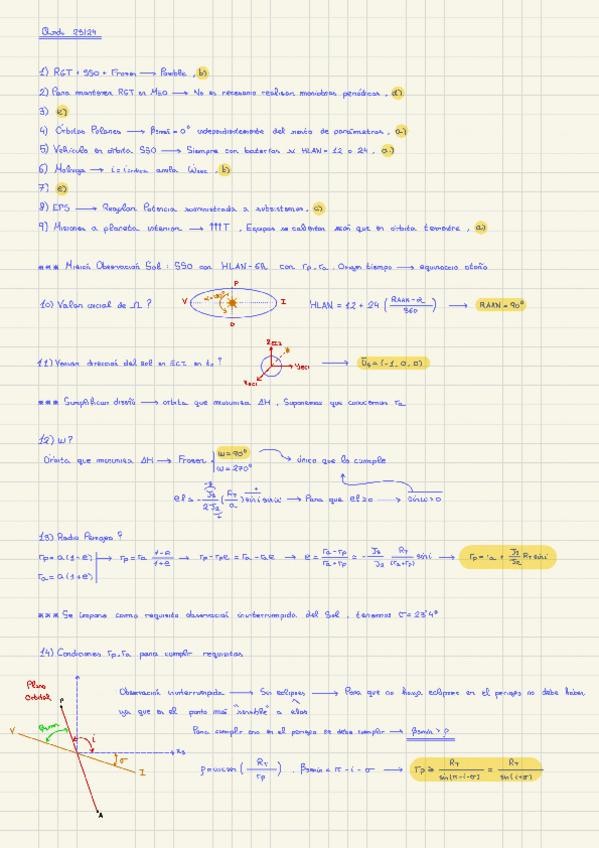 23/24
1) RGT + SSO + Frozen → Posible, b)
2) Para mantener RGT en MEO → No es necesario realizar maniobras periódicas, d)
3) e)
4) Órbitas Polares → βmin = 0° independientemente del resto de parámetros, a)
5) Vehículo en órbita SSO → Siempre con baterías si HLAN = 12 o 24, a)
6) Molniya → i = icrítica anula ω̇sec, b)
7) e)
8) EPS → Regular Potencia suministrada a subsistemas, c)
9) Misiones a planeta interior → ↑↑↑T, Equipos se calientan más que en órbita terrestre, a)
*** Misión Observación Sol: SSO con HLAN-6h con rp, ra. Origen tiempo → equinoccio otoño
10) Valor inicial de Ω?
P
V
I
O
HLAN = 12 + 24 (RAAN - α / 360) → RAAN = 90°
11) Vector dirección del sol en ECI en t₀?
ZECI
YECI
XECI
→ ūs = (-1, 0, 0)
*** Simplificar diseño → órbita que minimiza ΔH. Suponemos que conocemos ra
12) ω?
Órbita que minimiza ΔH → Frozen
ω = 90°
ω = 270°
único que lo cumple
e ≃ - J3 / 2J2 (RT / a) sin i sin ω → Para que e ≥ 0 → sin ω > 0
13) Radio Perigeo?
rp = a(1-e)
ra = a(1+e)
→ rp = ra 1-e / 1+e → rp - rpe = ra - rae → e = ra-rp / ra+rp ≃ - J3 / J2 RT / (ra+rp) sin i → rp = ra + J3 / J2 RT sin i
*** Se impone como requisito observación ininterrumpida del Sol, tenemos σ = 23'4°
14) Condiciones rp, ra para cumplir requisitos
Plano
Orbital
P
V
βmin
i
xs
σ
I
A
Observación ininterrumpida → Sin eclipses → Para que no haya eclipses en el perigeo no debe haber
ya que es el punto más "sensible" a ellos
Para cumplir eso en el perigeo se debe cumplir → βmin > ρ
ρ = arcsin (RT / rp), βmin = π - i - σ → rp ≥ RT / sin(π-i-σ) = RT / sin(i+σ)